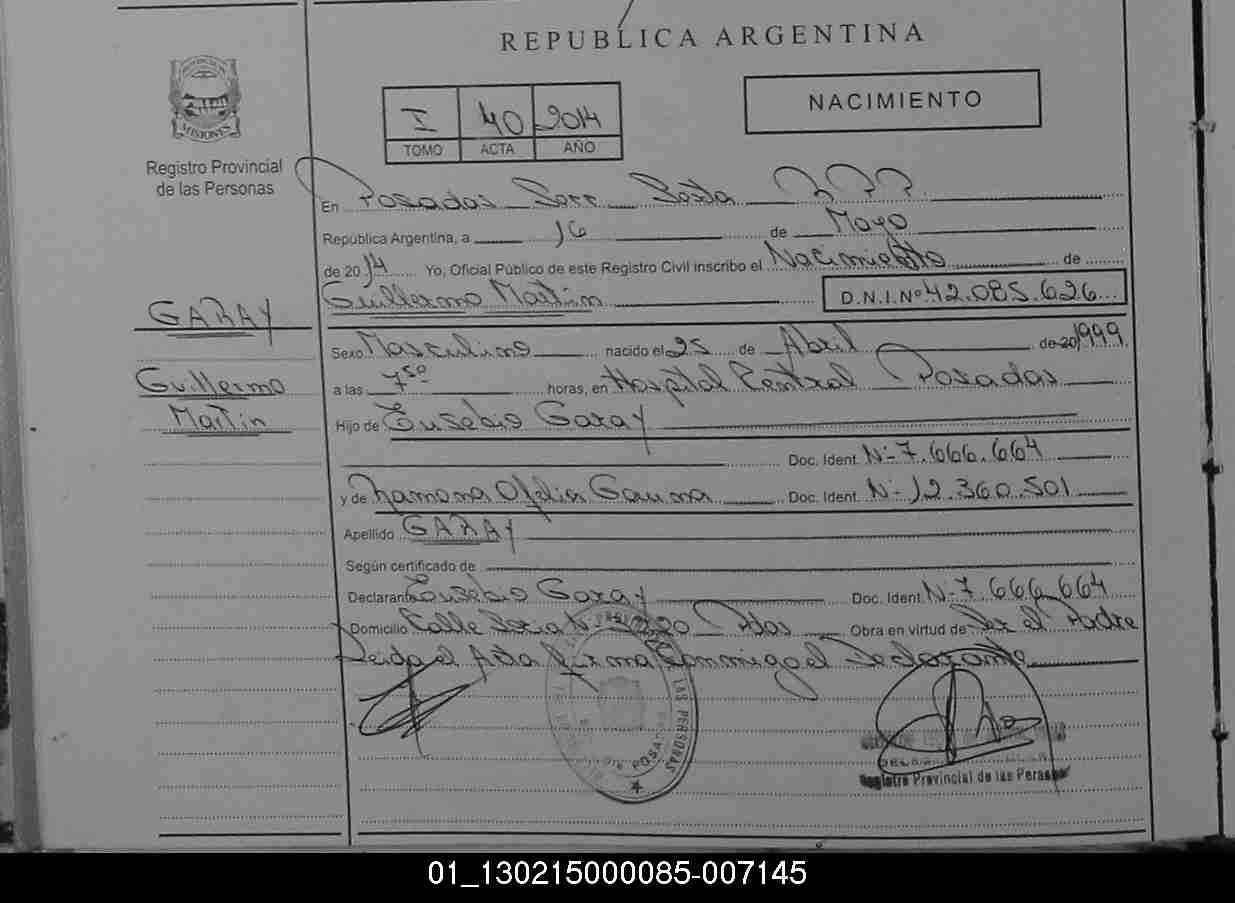 REPUBLICA ARGENTINA
PROVINCIA DE
MISIONES
Registro Provincial
de las Personas
I 40 2014
TOMO ACTA AÑO
NACIMIENTO
En Posadas Secc Sexta
República Argentina, a 16 de Mayo
de 2014 Yo, Oficial Público de este Registro Civil inscribo el Nacimiento de
Guillermo Martin D.N.I.Nº 42.085.626
GARAY
Sexo Masculino nacido el 25 de Abril de 20 1999
Guillermo
Martin
a las 7 50 horas, en Hospital Central Posadas
Hijo de Eusebio Garay
Doc. Ident. Nº 7.666.664
y de Ramona Ofelia Gauna Doc. Ident. Nº 12.360.501
Apellido GARAY
Según certificado de
Declarante Eusebio Garay Doc. Ident. Nº 7.666.664
Domicilio Calle Pdas Obra en virtud de Ser el Padre
Leida el Acta firma conmigo el Declarante
LAS PERSONAS
POSADAS
Registro Provincial de las Personas
01_130215000085-007145